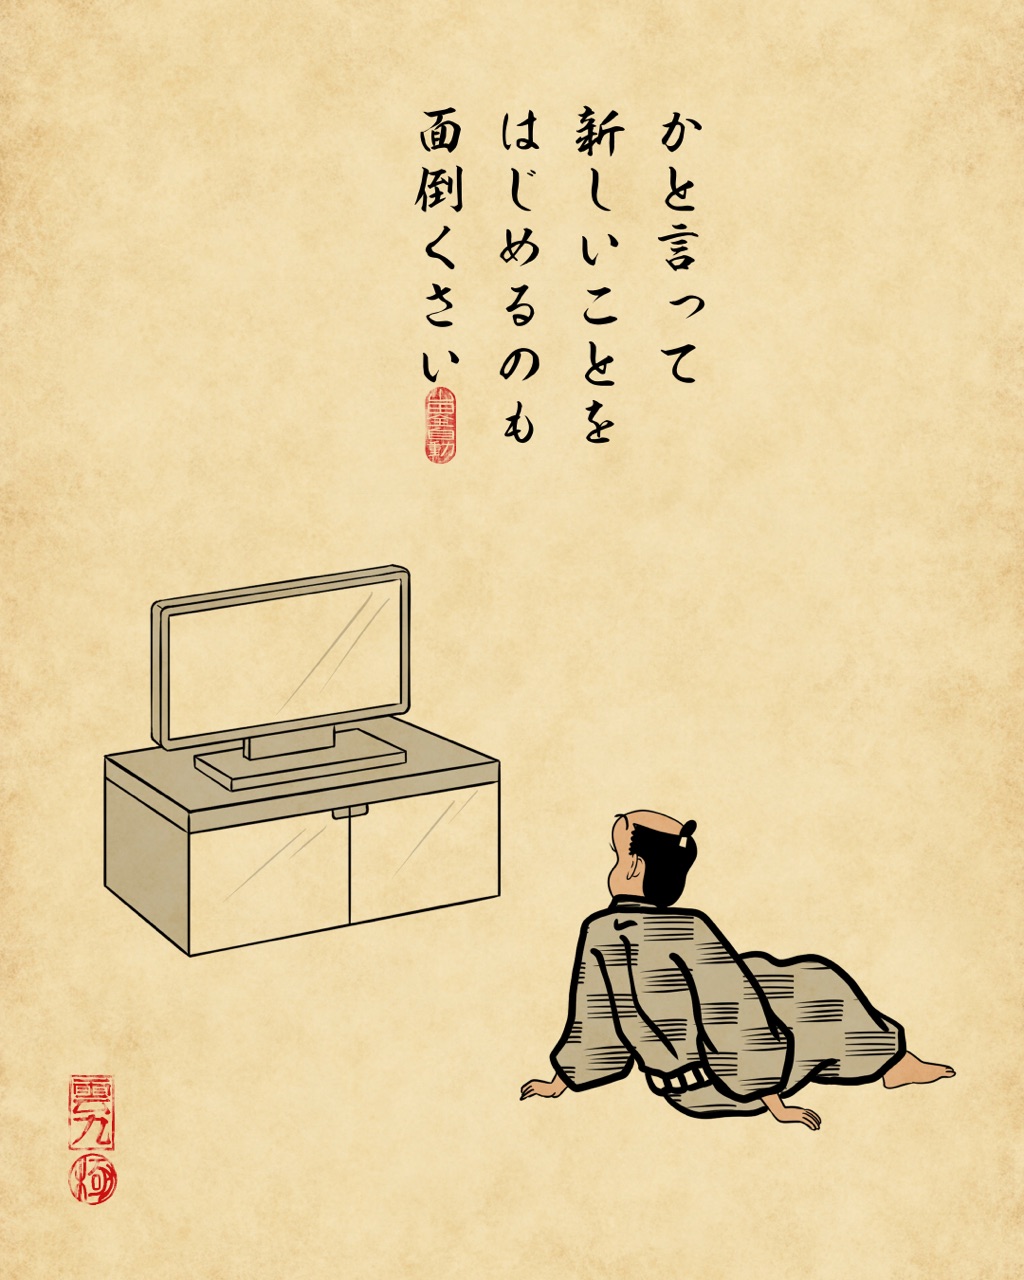 かと言って
新しいことを
はじめるのも
面倒くさい